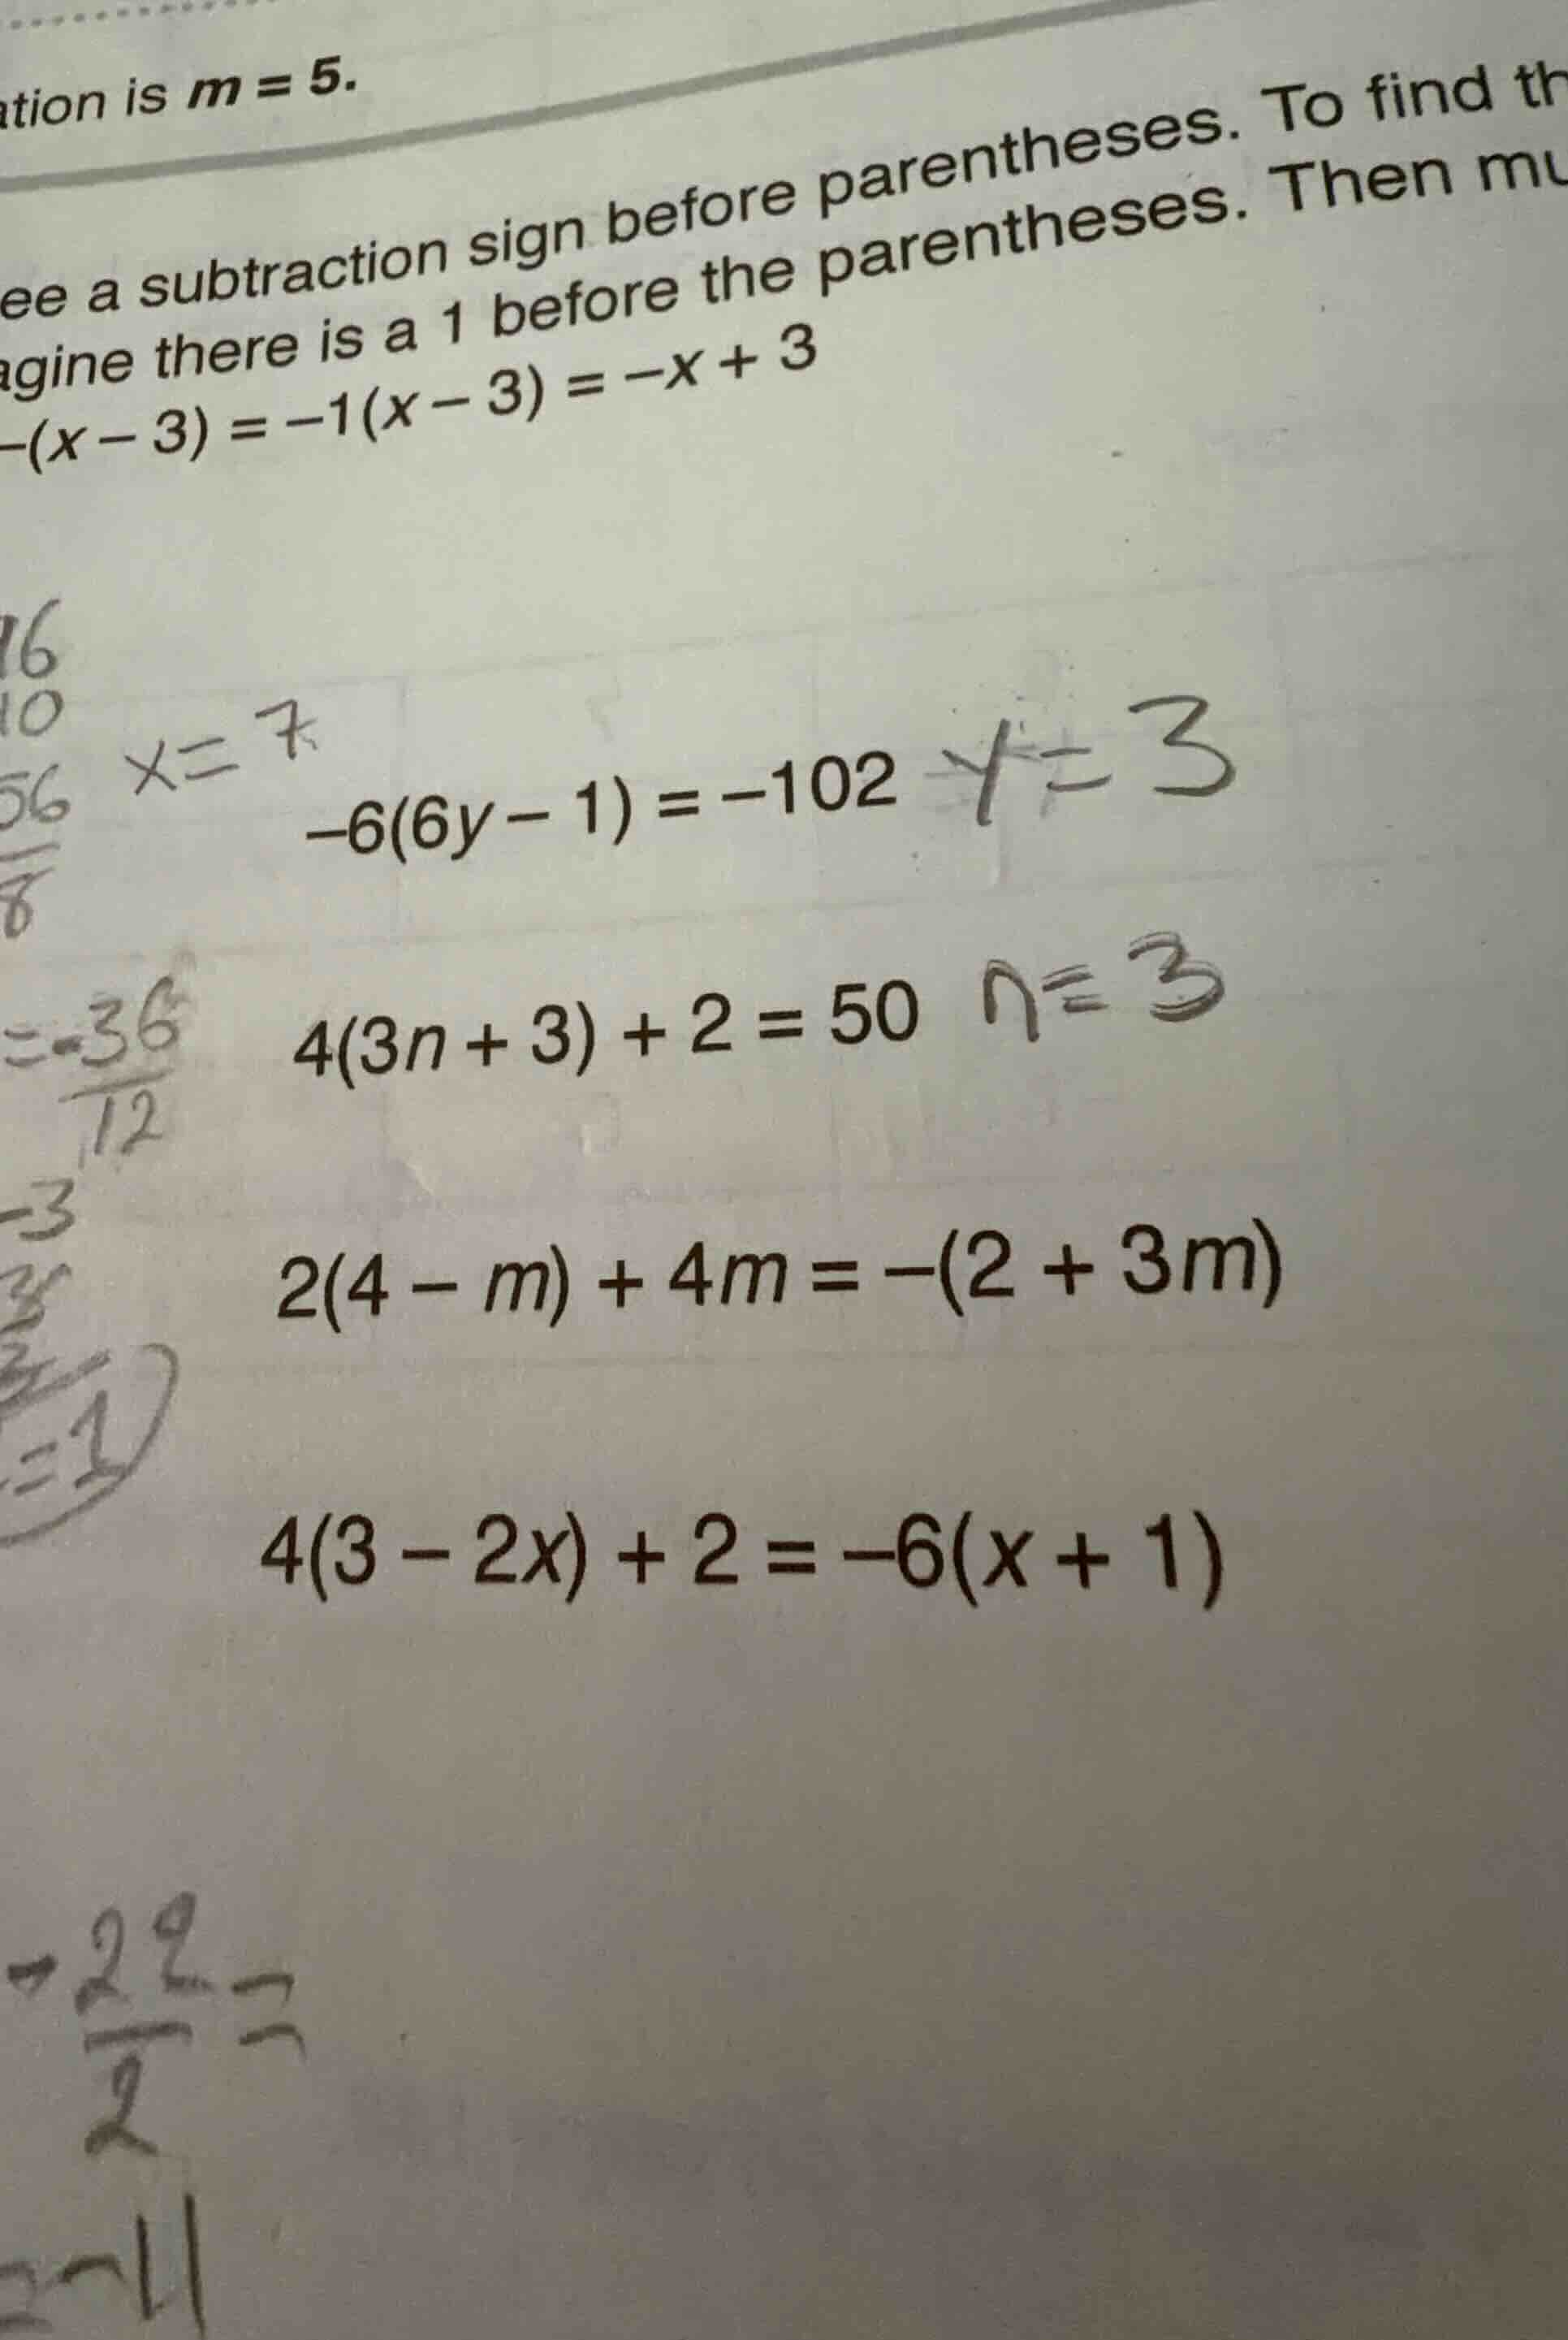 ation is m = 5.
ee a subtraction sign before parentheses. To find th
agine there is a 1 before the parentheses. Then mu
–(x – 3) = –1(x – 3) = –x + 3
16
10
56
8
x = 7
–6(6y – 1) = –102 y = 3
= -36
12
4(3n + 3) + 2 = 50 n = 3
-3
2(4 – m) + 4m = –(2 + 3m)
= 1
4(3 – 2x) + 2 = –6(x + 1)
- 22 =
2
= -11